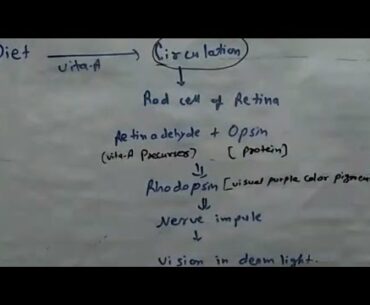 Diet Circulation
Vita-A
Rod cell of Retina
Retinadehyde + Opsin
(vita-A Precurses) [Protein]
Rhodopsin [visual purple color pigmen
Nerve impule
Vision in deam light.